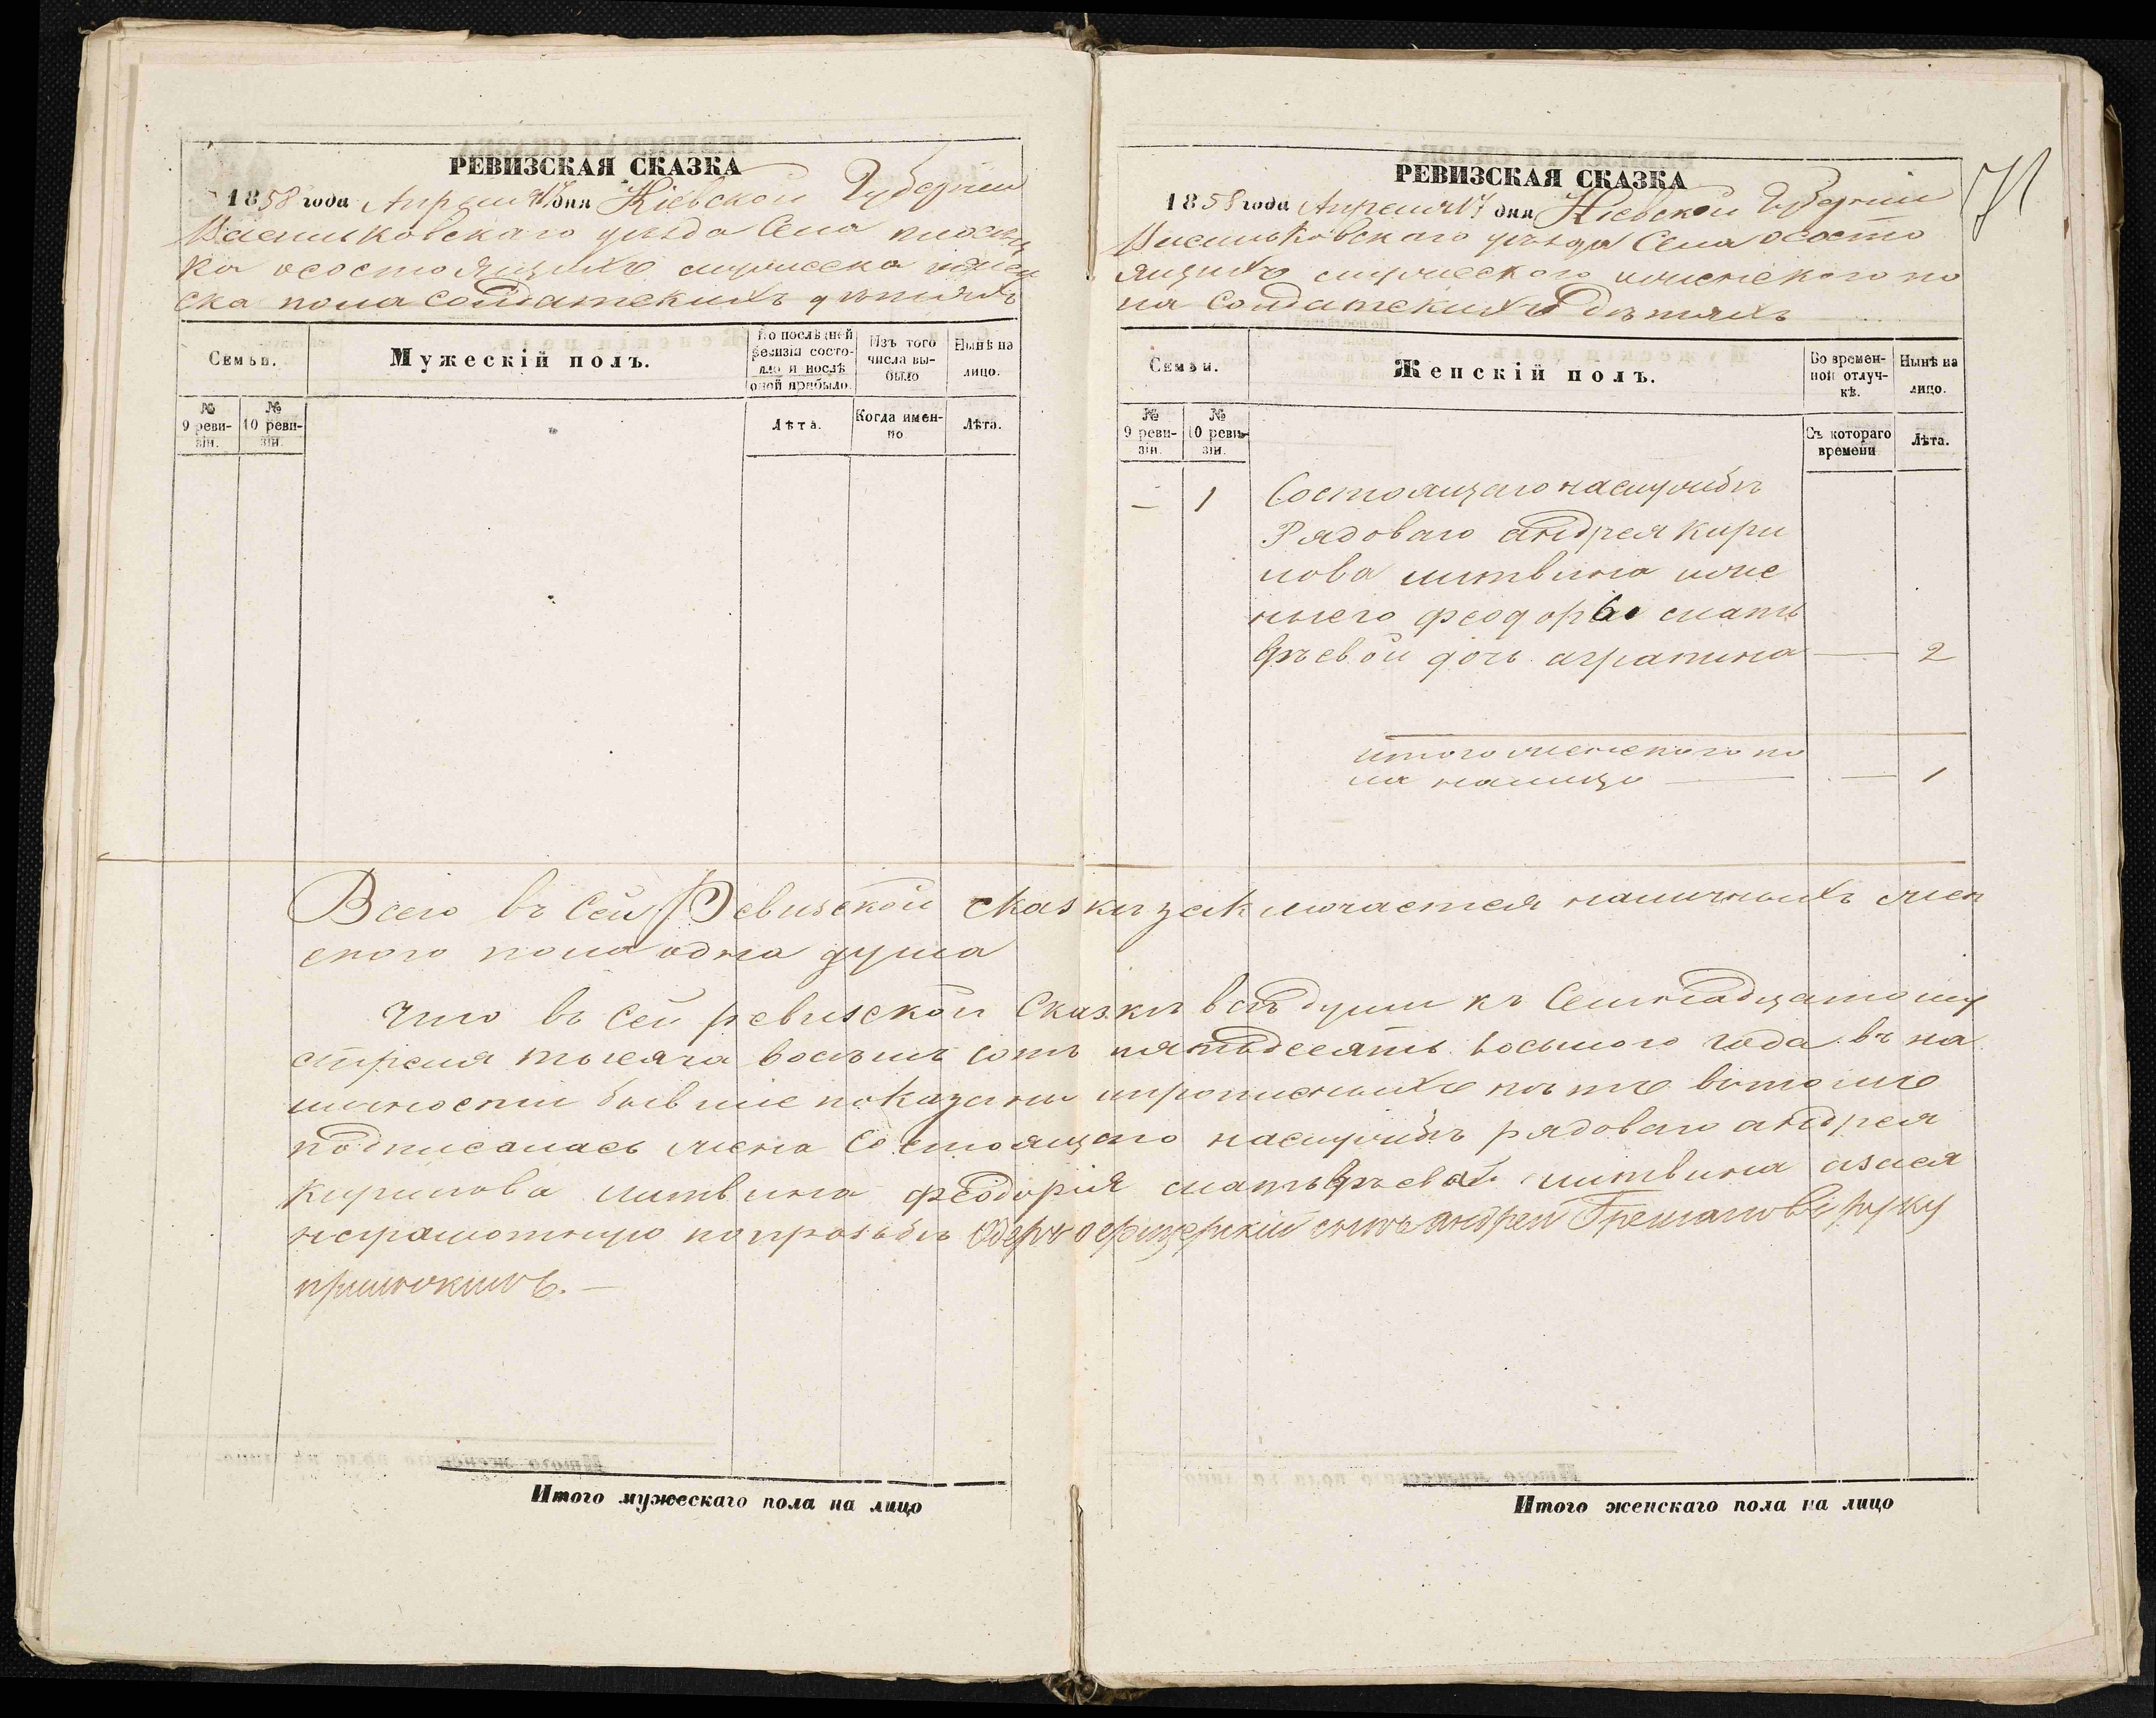 РЕВИЗСКАЯ СКАЗКА
1858 года Апреля 17 дня Кіевской Губерніи
Васильковскаго уезда Села
ка осостоящихъ мужеска иженс
ска пола Солдатскихъ детяхъ
Семьи.
Мужескій полъ.
По послѣдней ревизіи состо-
яло и послѣ
оной прибыло.
Изъ того
числа вы-
было
Нынѣ на
лицо.
№
9 реви-
зіи.
№
10 реви-
зіи.
Лѣта.
Когда имен-
но
Лѣта.
РЕВИЗСКАЯ СКАЗКА
71
1858 года Апреля 17 дня Кіевской Губерніи
Васильковскаго уезда Села ососто
ящихъ мужеского иженского по
ла Солдатскихъ Детяхъ
Семьи.
Женскій полъ.
Во времен-
ной отлуч-
кѣ.
Нынѣ на
лицо.
№
9 реви-
зіи.
№
10 реви-
зіи.
Съ котораго
времени
Лѣта.
— 1 Состоящаго наслужбѣ
Рядоваго андрея кири
лова литвина ижие
ныего феодоры
дочь агрипина — 2
итого женского по
ла налицо — — 1
Всего въ Сей Ревизской сказки заключается наличныхъ жен
ского пола одна душа
Что въ Сей ревизской Сказкѣ всѣ души къ Семнадцатому
апреля тысяча восъмъ сотъ пятьдесятъ восьмого года въ на
личности бывшіе показаны ипрописныхъ нѣтъ вътомъ
подписалась жена Состоящаго наслужбѣ рядоваго андрея
Кирилова литвина феодорія литвина азася
неграмотную попрозьбѣ Оберъ офицерскій сынъ андрей руку
приложилъ. —
Итого мужескаго пола на лицо
Итого женскаго пола на лицо